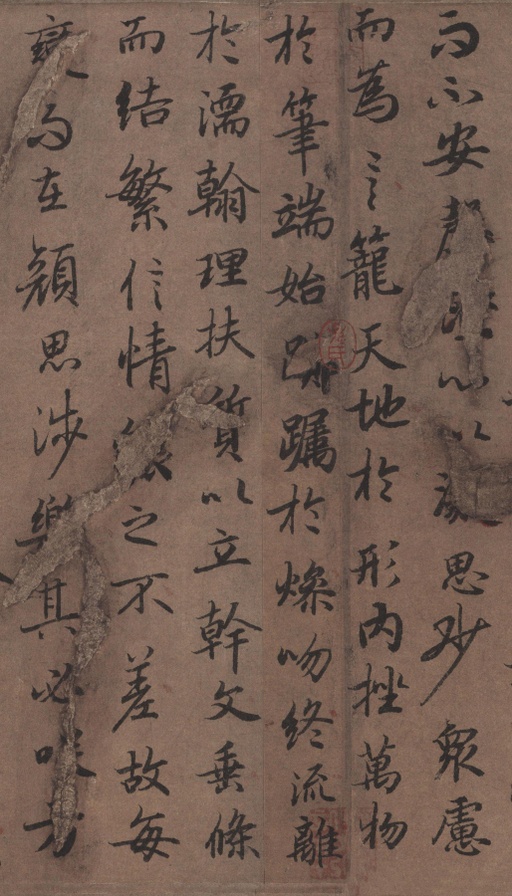 而不安心以思妙衆慮
而為言籠天地於形内挫萬物
於筆端始於燥吻終流離
於濡翰理扶質以立幹文垂條
而結繁信情之不差故每
而在顏思涉樂其必方